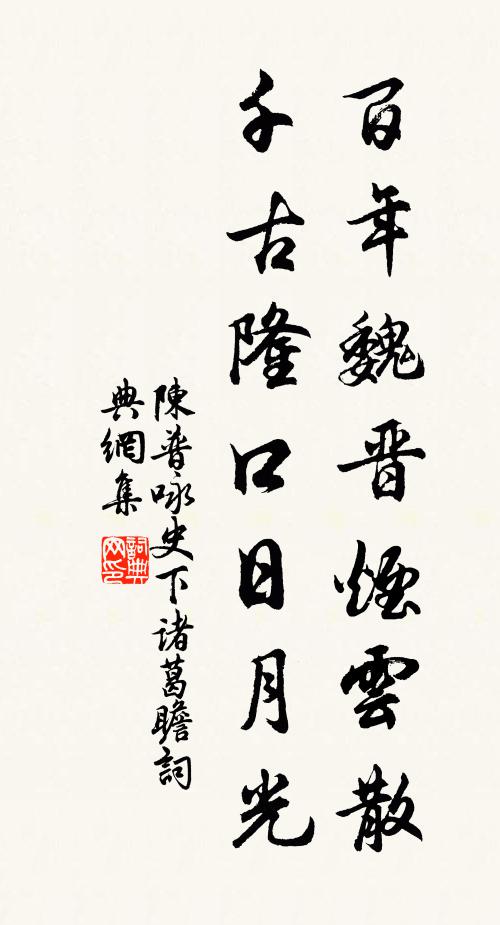 百年魏晋煙雲散
千古隆口日月光
陳普咏史下諸葛瞻詞
典網集
詞典网印